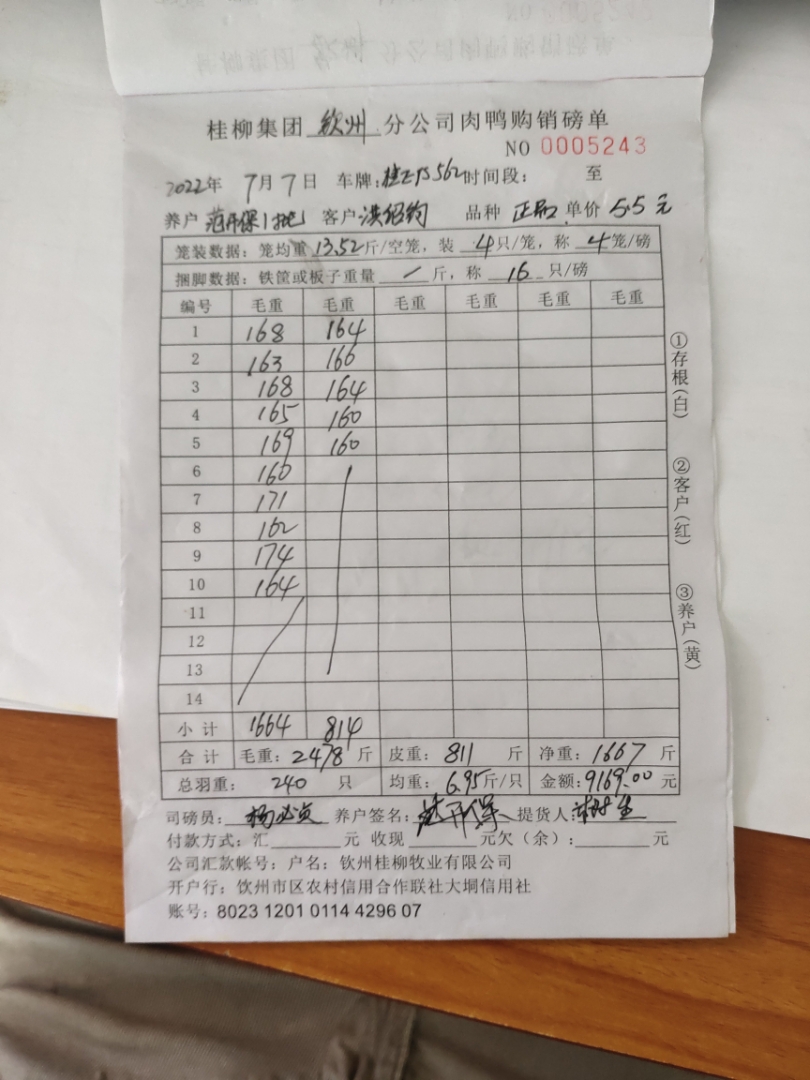 桂柳集团 钦州 分公司肉鸭购销磅单
NO 0005243
2022年 7月7日 车牌: 562 时间段: 至
养户 范开保1批 客户: 洪绍钧 品种 正品 单价 5.5 元
笼装数据: 笼均重 13.52 斤/空笼, 装 4 只/笼, 称 4 笼/磅
捆脚数据: 铁筐或板子重量 / 斤, 称 16 只/磅
编号 毛重 毛重 毛重 毛重 毛重 毛重
1 168 164
2 163 166
3 168 164
4 165 160
5 169 160
6 160
7 171
8 162
9 174
10 164
11
12
13
14
小计 1664 814
合计 毛重: 2478 斤 皮重: 811 斤 净重: 1667 斤
总羽重: 240 只 均重: 6.95斤/只 金额: 9169.00 元
司磅员: 杨必贞 养户签名: 范开保 提货人:
付款方式: 汇 元 收现 元欠(余): 元
公司汇款帐号: 户名: 钦州桂柳牧业有限公司
开户行: 钦州市区农村信用合作联社大垌信用社
账号: 8023 1201 0114 4296 07
①存根(白)
②客户(红)
③养户(黄)